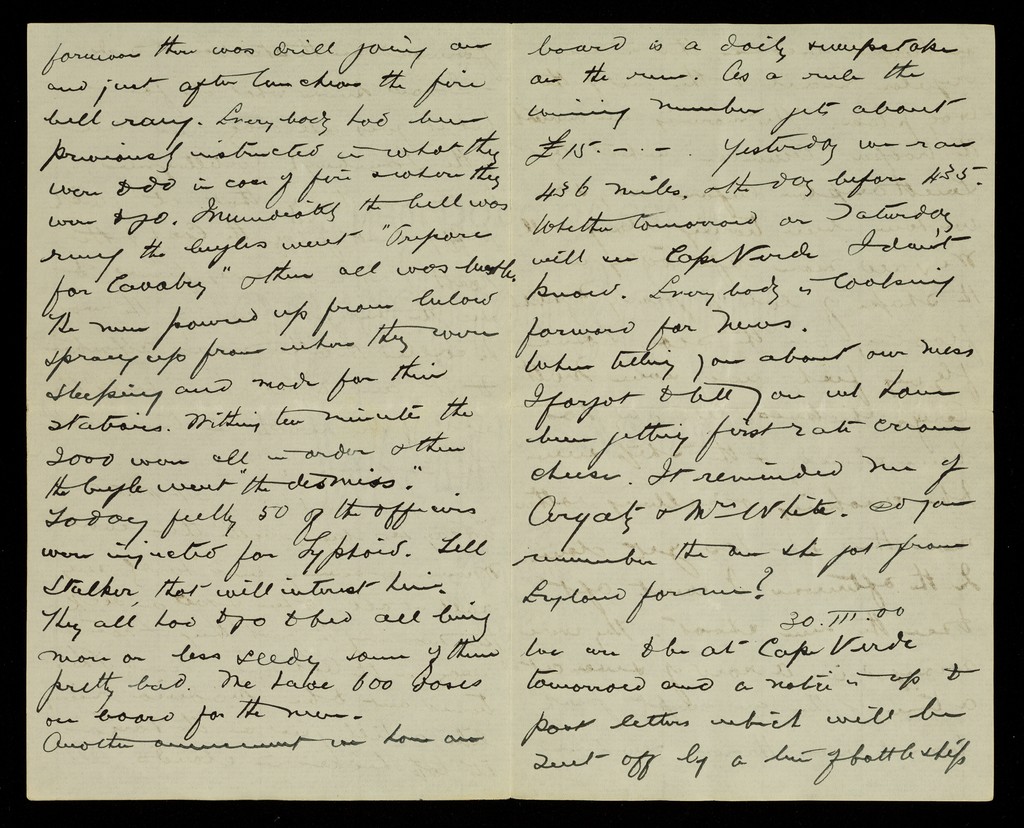 forenoon there was drill going on
and just after luncheon the fire
bell rang. Everybody had been
previously instructed in what they
were to do in case of fire & where they
were to go. Immediately the bell was
rung the bugles went "Prepare
for Cavalry" & then all was bustle.
The men poured up from below
sprang up from where they were
sleeping and made for their
stations. Within ten minutes the
2000 were all in order & then
the bugle went "the dismiss".
Today fully 50 of the officers
were injected for Typhoid. Tell
Stalker, that will interest him.
They all had to go to bed all being
more or less seedy some of them
pretty bad. We have 600 doses
on board for the men.
Another amusement we have on
board is a daily sweepstake
on the run. As a rule the
winning number gets about
£15. - . - . Yesterday we ran
436 miles, & the day before 435.
Whether tomorrow or Saturday
will see Cape Verde I don't
know. Everybody is looking
forward for news.
When telling you about our mess
I forgot to tell you we have
been getting first rate cream
cheese. It reminded me of
& Mrs White. Do you
remember the one she got from
England for me?
30.III.00
We are to be at Cape Verde
tomorrow and a notice is up to
post letters which will be
sent off by a line of battle ship